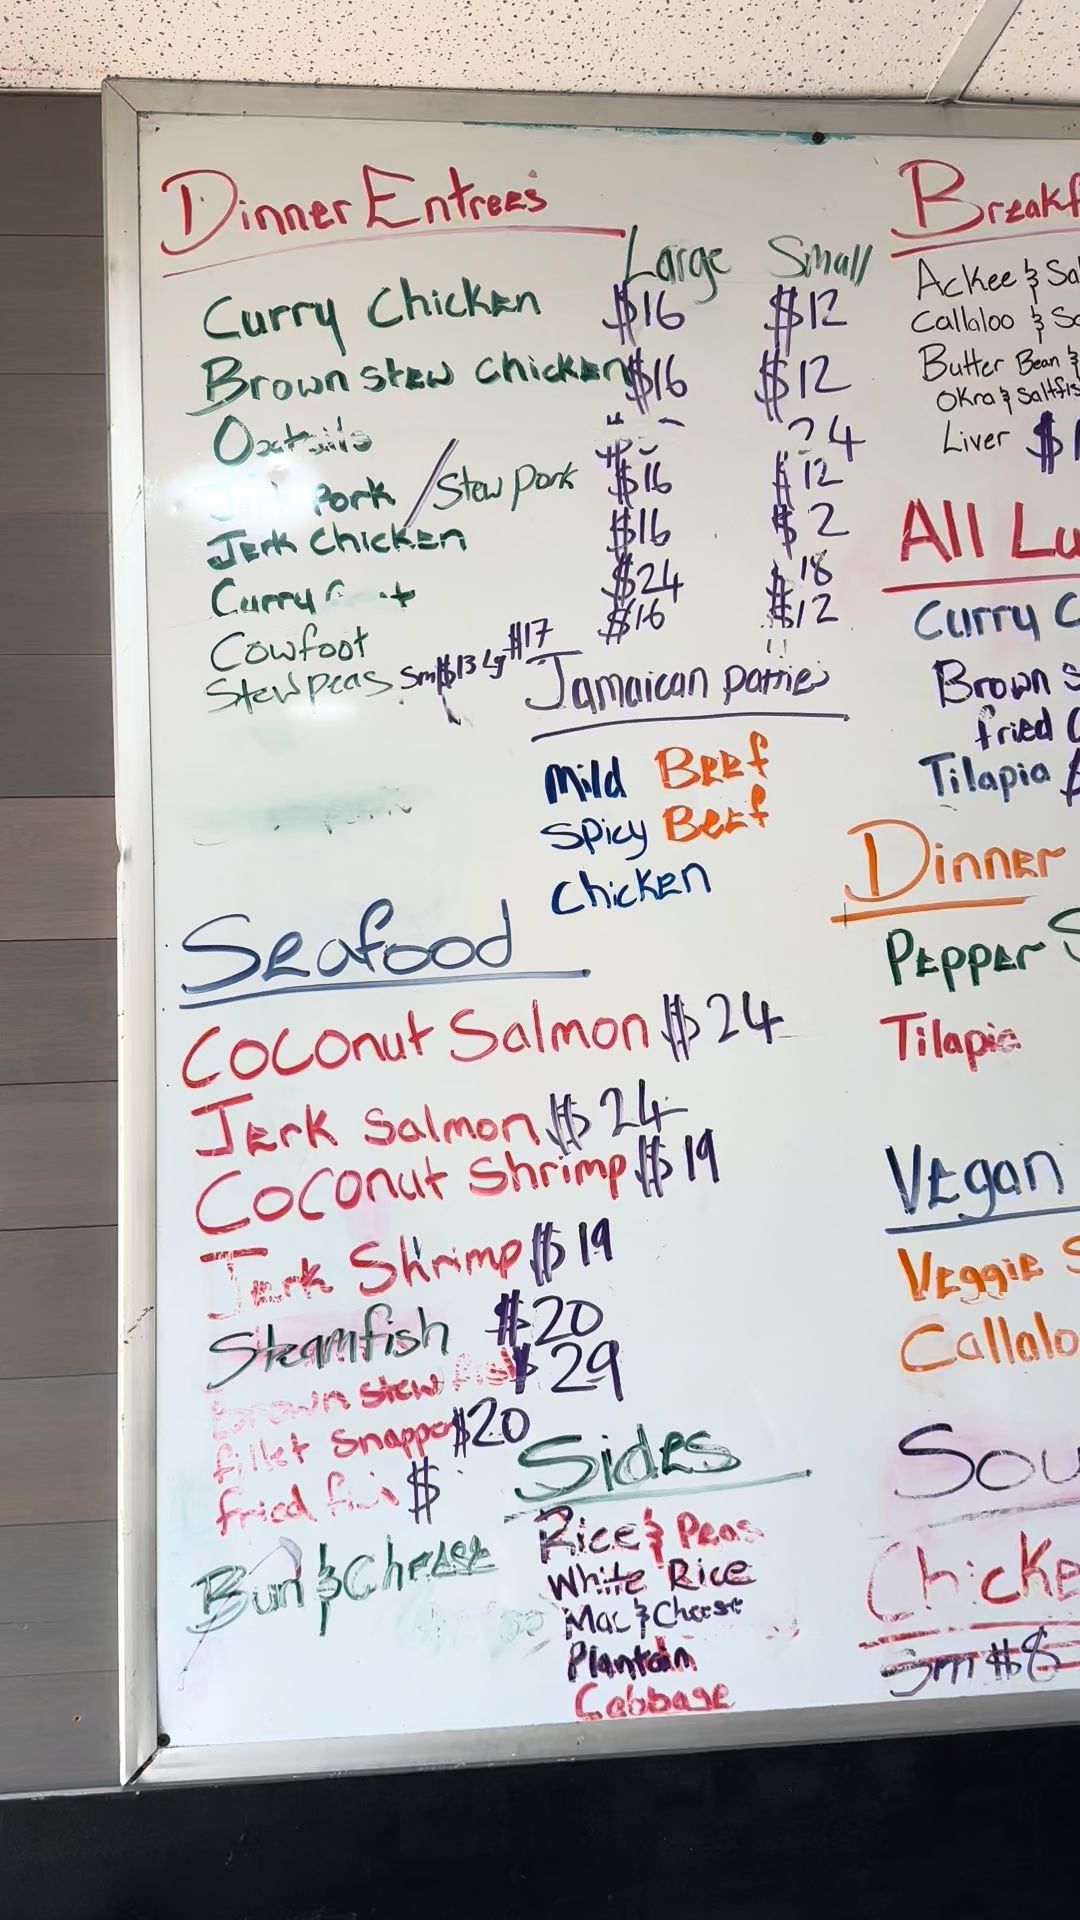 Dinner Entrees
Large Small
Curry Chicken $16 $12
Brown stew chicken $16 $12
Oxtails 24
Pork / Stew pork $16 $12
Jerk Chicken $16 $ 2
Curry $24 $18
Cowfoot $16 $12
Stew peas Sm $13 Lg $17
Jamaican patties
Mild Beef
Spicy Beef
Chicken
Seafood
Coconut Salmon $24
Jerk Salmon $24
Coconut Shrimp $19
Jerk Shrimp $19
Steamfish $20
Brown stew fish $29
fillet Snapper $20
fried $
Bun & Cheese
Sides
Rice & Peas
White Rice
Mac & Cheese
Plantain
Cabbage
Breakf
Ackee & Sal
Callaloo & Sa
Butter Bean &
Okra & Saltfis
Liver $1
All Lu
Curry C
Brown S
fried C
Tilapia $
Dinner
Pepper S
Tilapia
Vegan
Veggie S
Callalo
Sou
Chicke
Sm $8